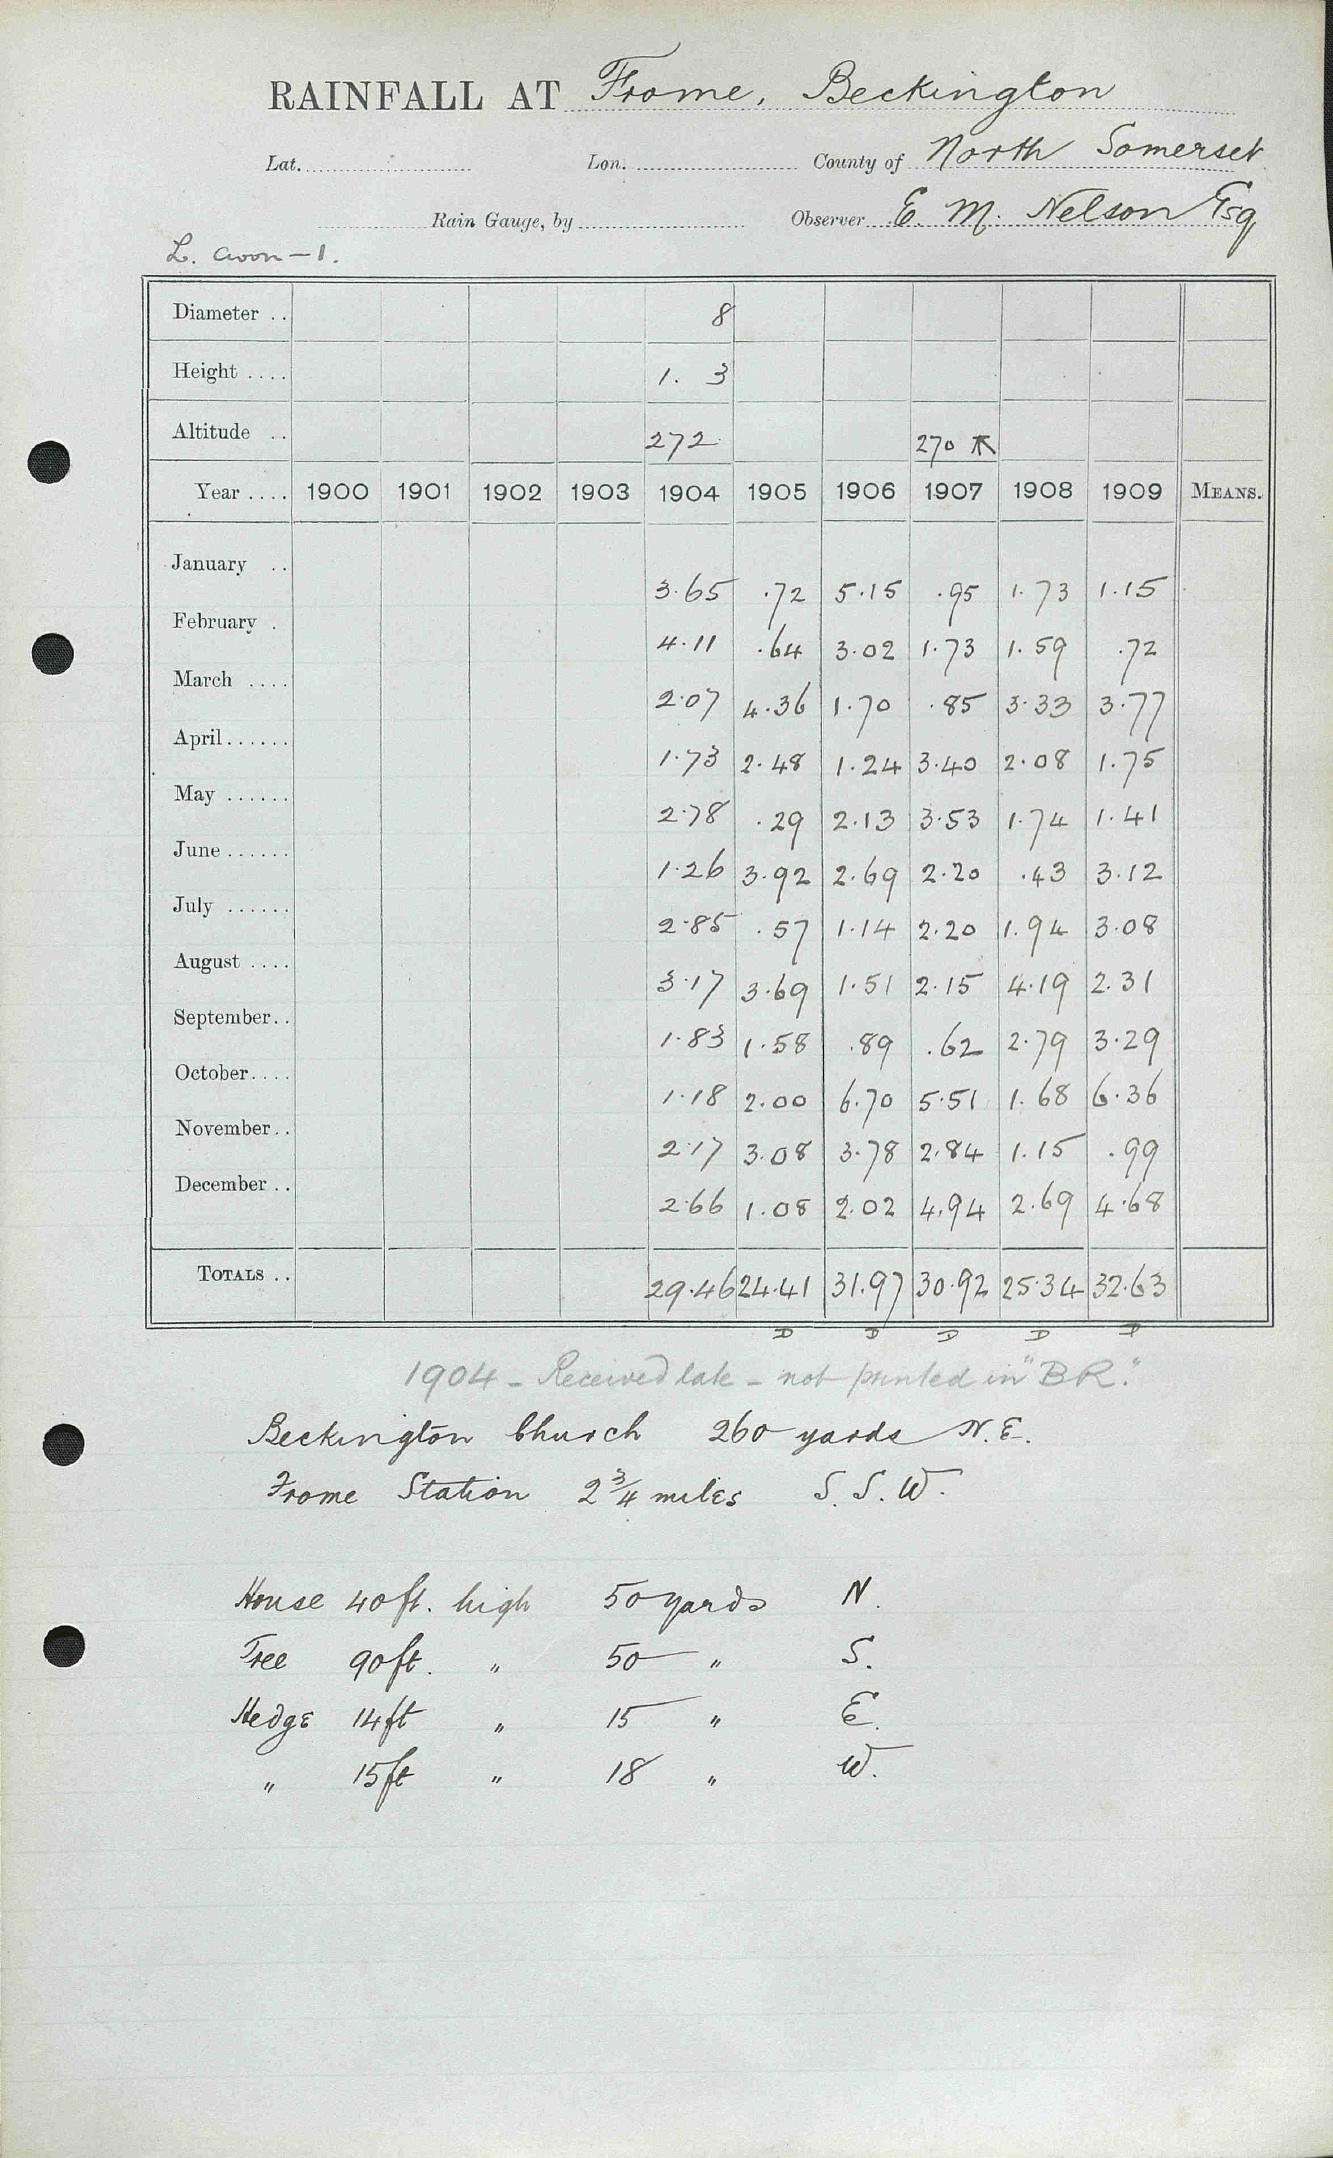 RAINFALL AT Frome, Beckington
Lat. Lon. County of North Somerset
Rain Gauge, by Observer E. M. Nelson Esq
L. Avon – 1.
Diameter .. 8
Height .... 1. 3
Altitude .. 272 270
Year .... 1900 1901 1902 1903 1904 1905 1906 1907 1908 1909 MEANS.
January .. 3.65 .72 5.15 .95 1.73 1.15
February . 4.11 .64 3.02 1.73 1.59 .72
March .... 2.07 4.36 1.70 .85 3.33 3.77
April...... 1.73 2.48 1.24 3.40 2.08 1.75
May ...... 2.78 .29 2.13 3.53 1.74 1.41
June...... 1.26 3.92 2.69 2.20 .43 3.12
July ...... 2.85 .57 1.14 2.20 1.94 3.08
August .... 3.17 3.69 1.51 2.15 4.19 2.31
September.. 1.83 1.58 .89 .62 2.79 3.29
October.... 1.18 2.00 6.70 5.51 1.68 6.36
November.. 2.17 3.08 3.78 2.84 1.15 .99
December .. 2.66 1.08 2.02 4.94 2.69 4.68
TOTALS .. 29.46 24.41 31.97 30.92 25.34 32.63
D D D D D
1904 – Received late – not printed in "B R".
Beckington Church 260 yards N.E.
Frome Station 2 3/4 miles S.S.W.
House 40ft. high 50 yards N.
Tree 90ft. " 50 " S.
Hedge 14ft " 15 " E.
" 15ft " 18 " W.